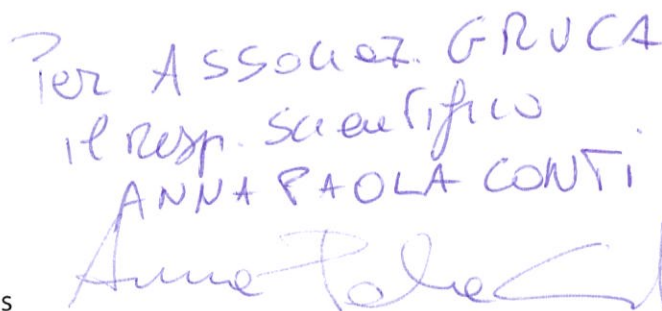 Per ASSOCIAZ. GRUCA
il Resp. Scientifico
ANNA PAOLA CONTI
Anna Paola Conti
s